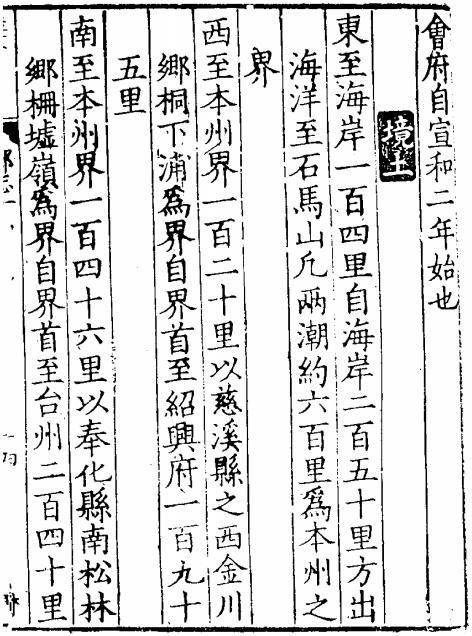 會府自宣和二年始也
境土
東至海岸一百四里自海岸二百五十里方出
海洋至石馬山凢兩潮約六百里爲本州之
界
西至本州界一百二十里以慈溪縣之西金川
鄉桐下浦爲界自界首至紹興府一百九十
五里
南至本州界一百四十六里以奉化縣南松林
鄉柵墟嶺爲界自界首至台州二百四十里